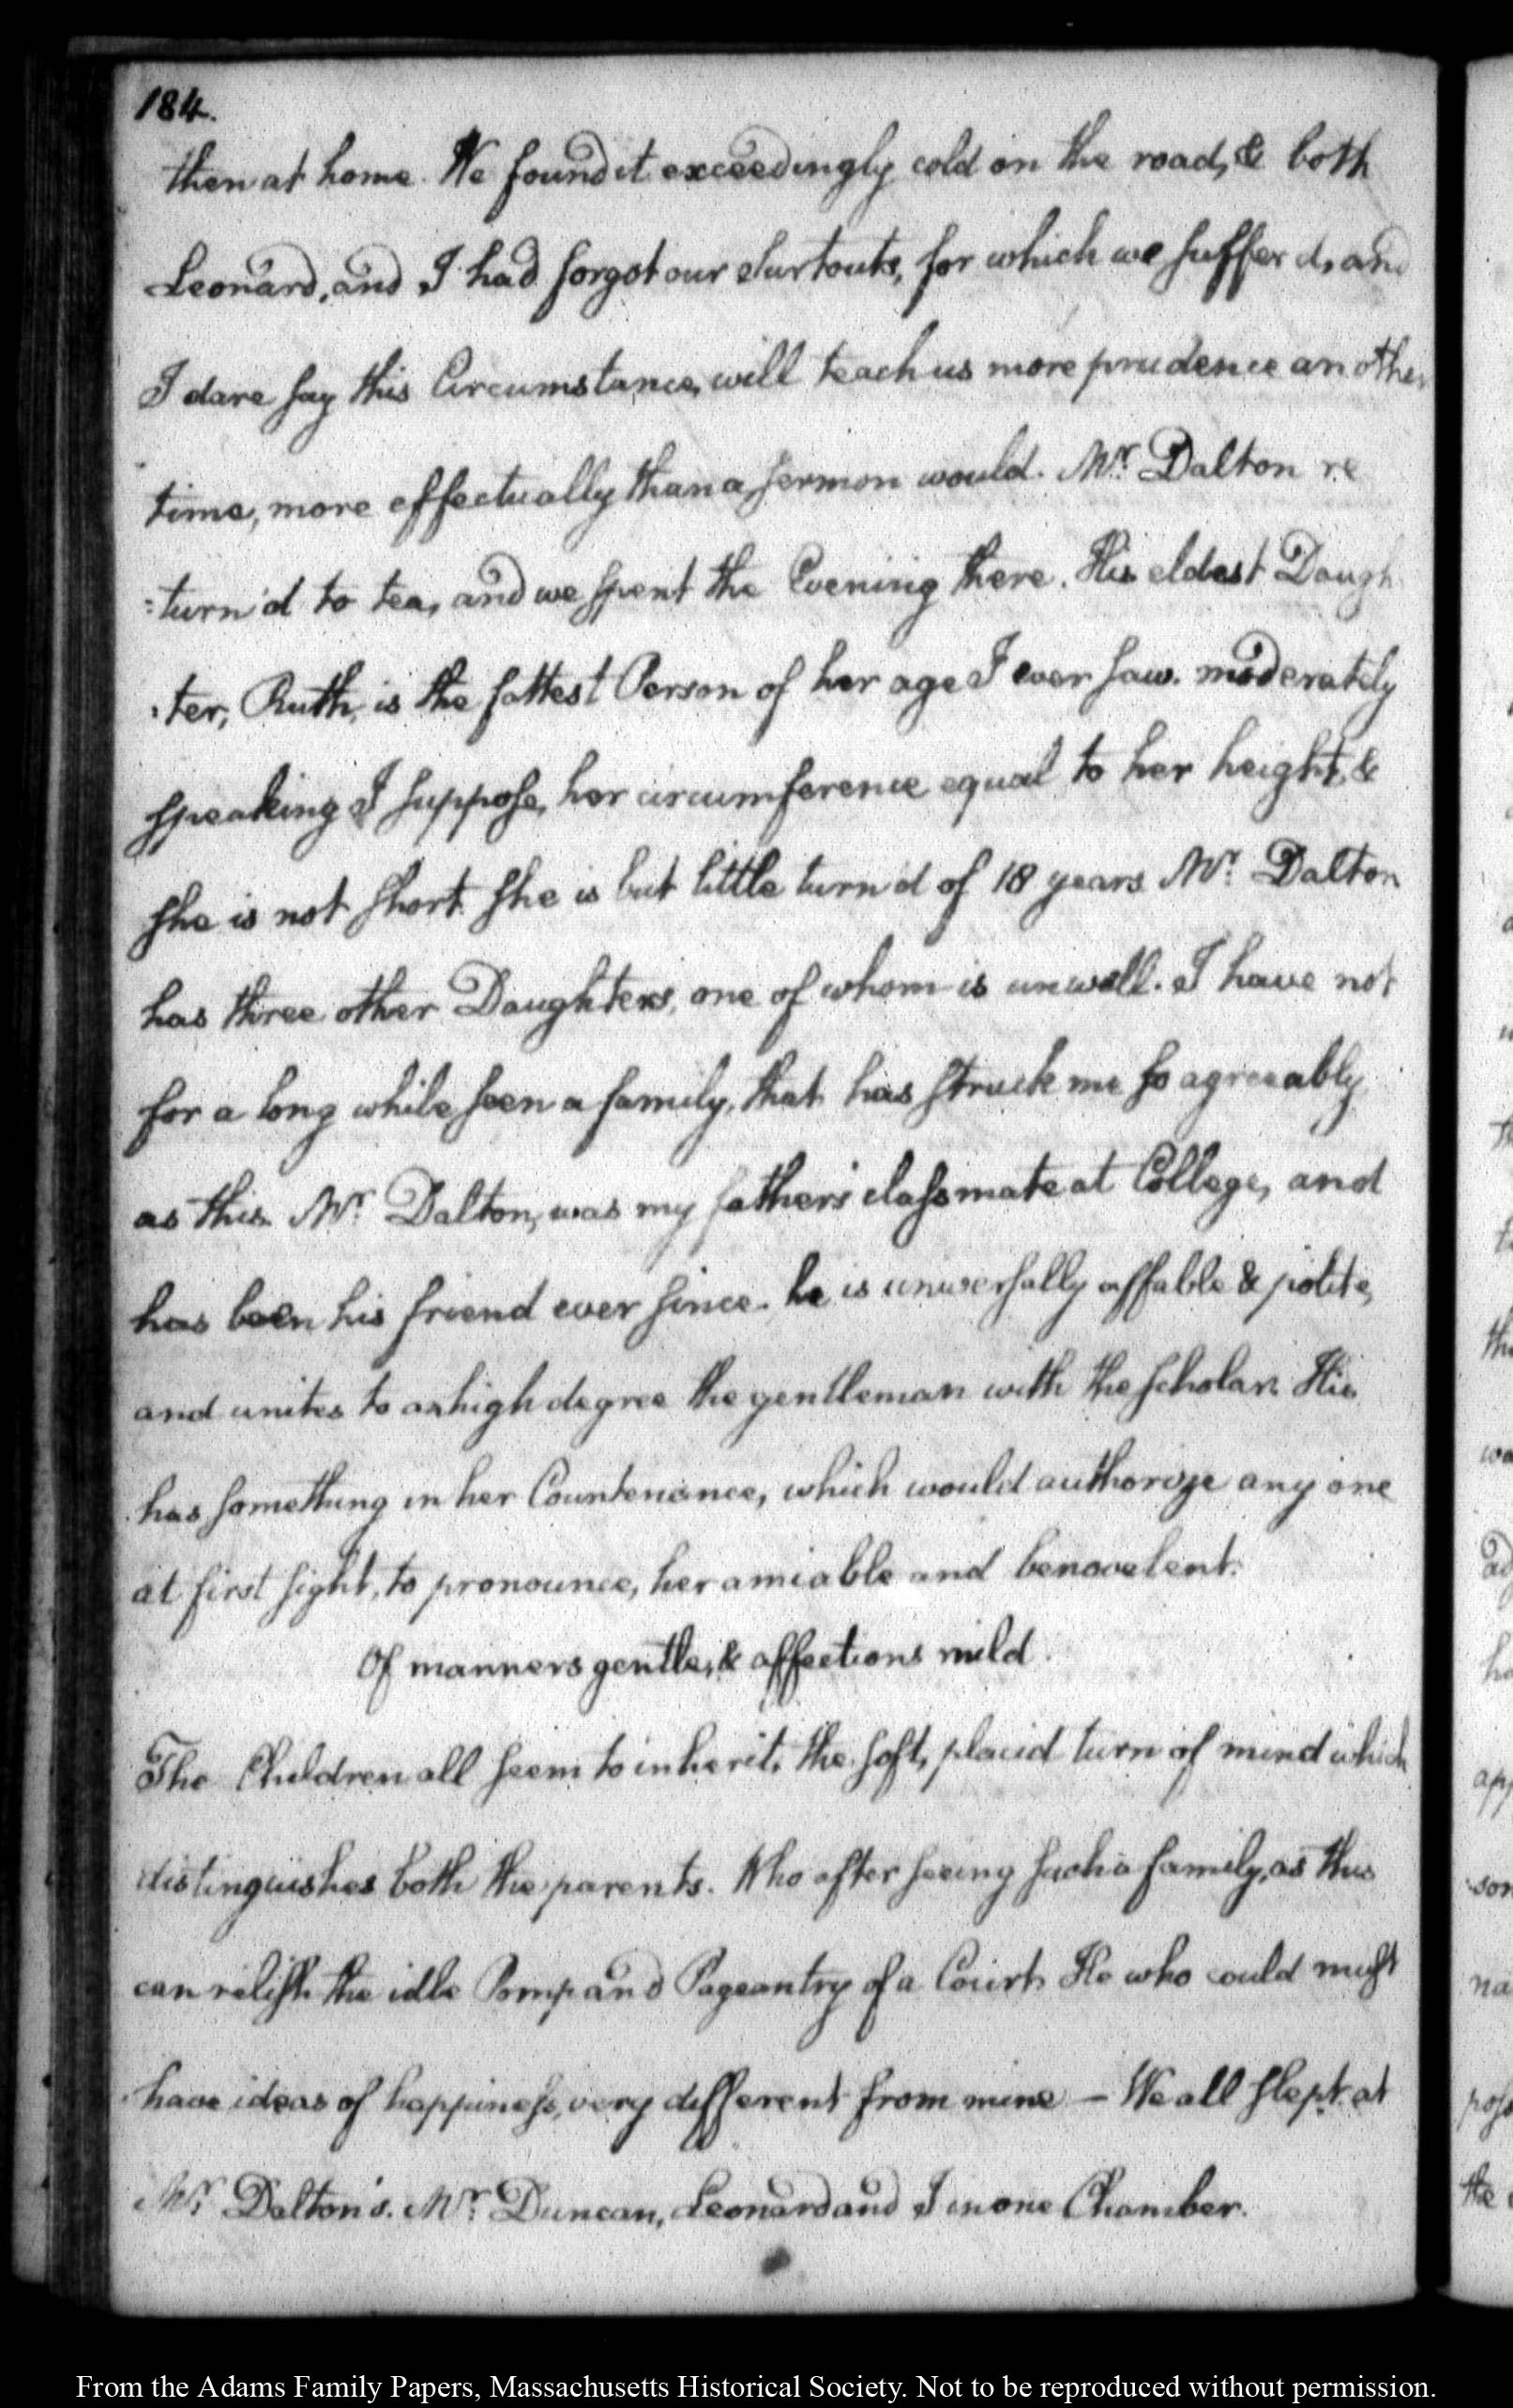 184.
then at home. We found it exceedingly cold on the road, & both
Leonard, and I had forgot our Surtouts, for which we suffer'd, and
I dare say this Circumstance, will teach us more prudence another
time, more effectually than a sermon would. Mr. Dalton re
:turn'd to tea, and we spent the Evening there. His eldest Daugh
:ter, Ruth, is the fattest Person of her age I ever saw. moderately
speaking I suppose, her circumference equal to her height, &
she is not short. She is but little turn'd of 18 years. Mr. Dalton
has three other Daughters, one of whom is unwell. I have not
for a long while seen a family, that has struck me so agreeably
as this. Mr. Dalton, was my father's classmate at College, and
has been his friend ever since. he is universally affable & polite,
and unites to a high degree the gentleman with the scholar. His
has something in her Countenance, which would authorize any one
at first sight, to pronounce, her amiable and benovelent.
Of manners gentle, & affections mild.
The Children all seem to inherit, the soft, placid turn of mind which
distinguishes both the parents. Who after seeing such a family, as this
can relish the idle Pomp and Pageantry of a Court. He who could must
have ideas of happiness, very different from mine — We all slept at
Mr. Dalton's. Mr. Duncan, Leonard and I in one Chamber.
From the Adams Family Papers, Massachusetts Historical Society. Not to be reproduced without permission.